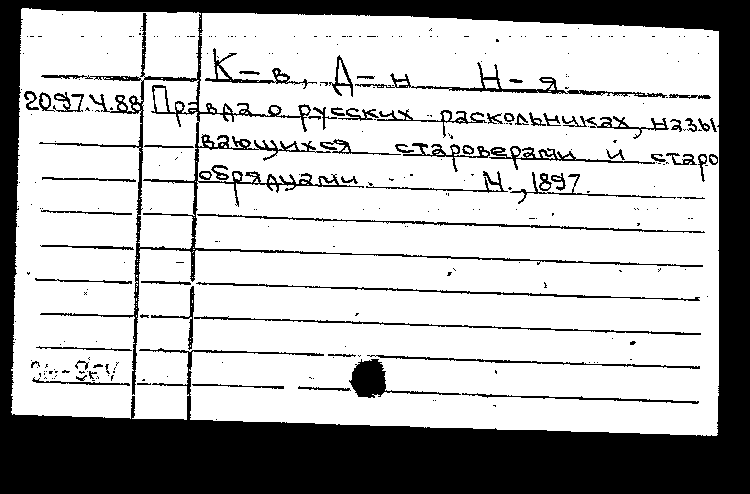 К-в, Д-н Н-я.
20.97.4.88 Правда о русских раскольниках, назы-
вающихся староверами и старо
обрядцами. М., 1897.